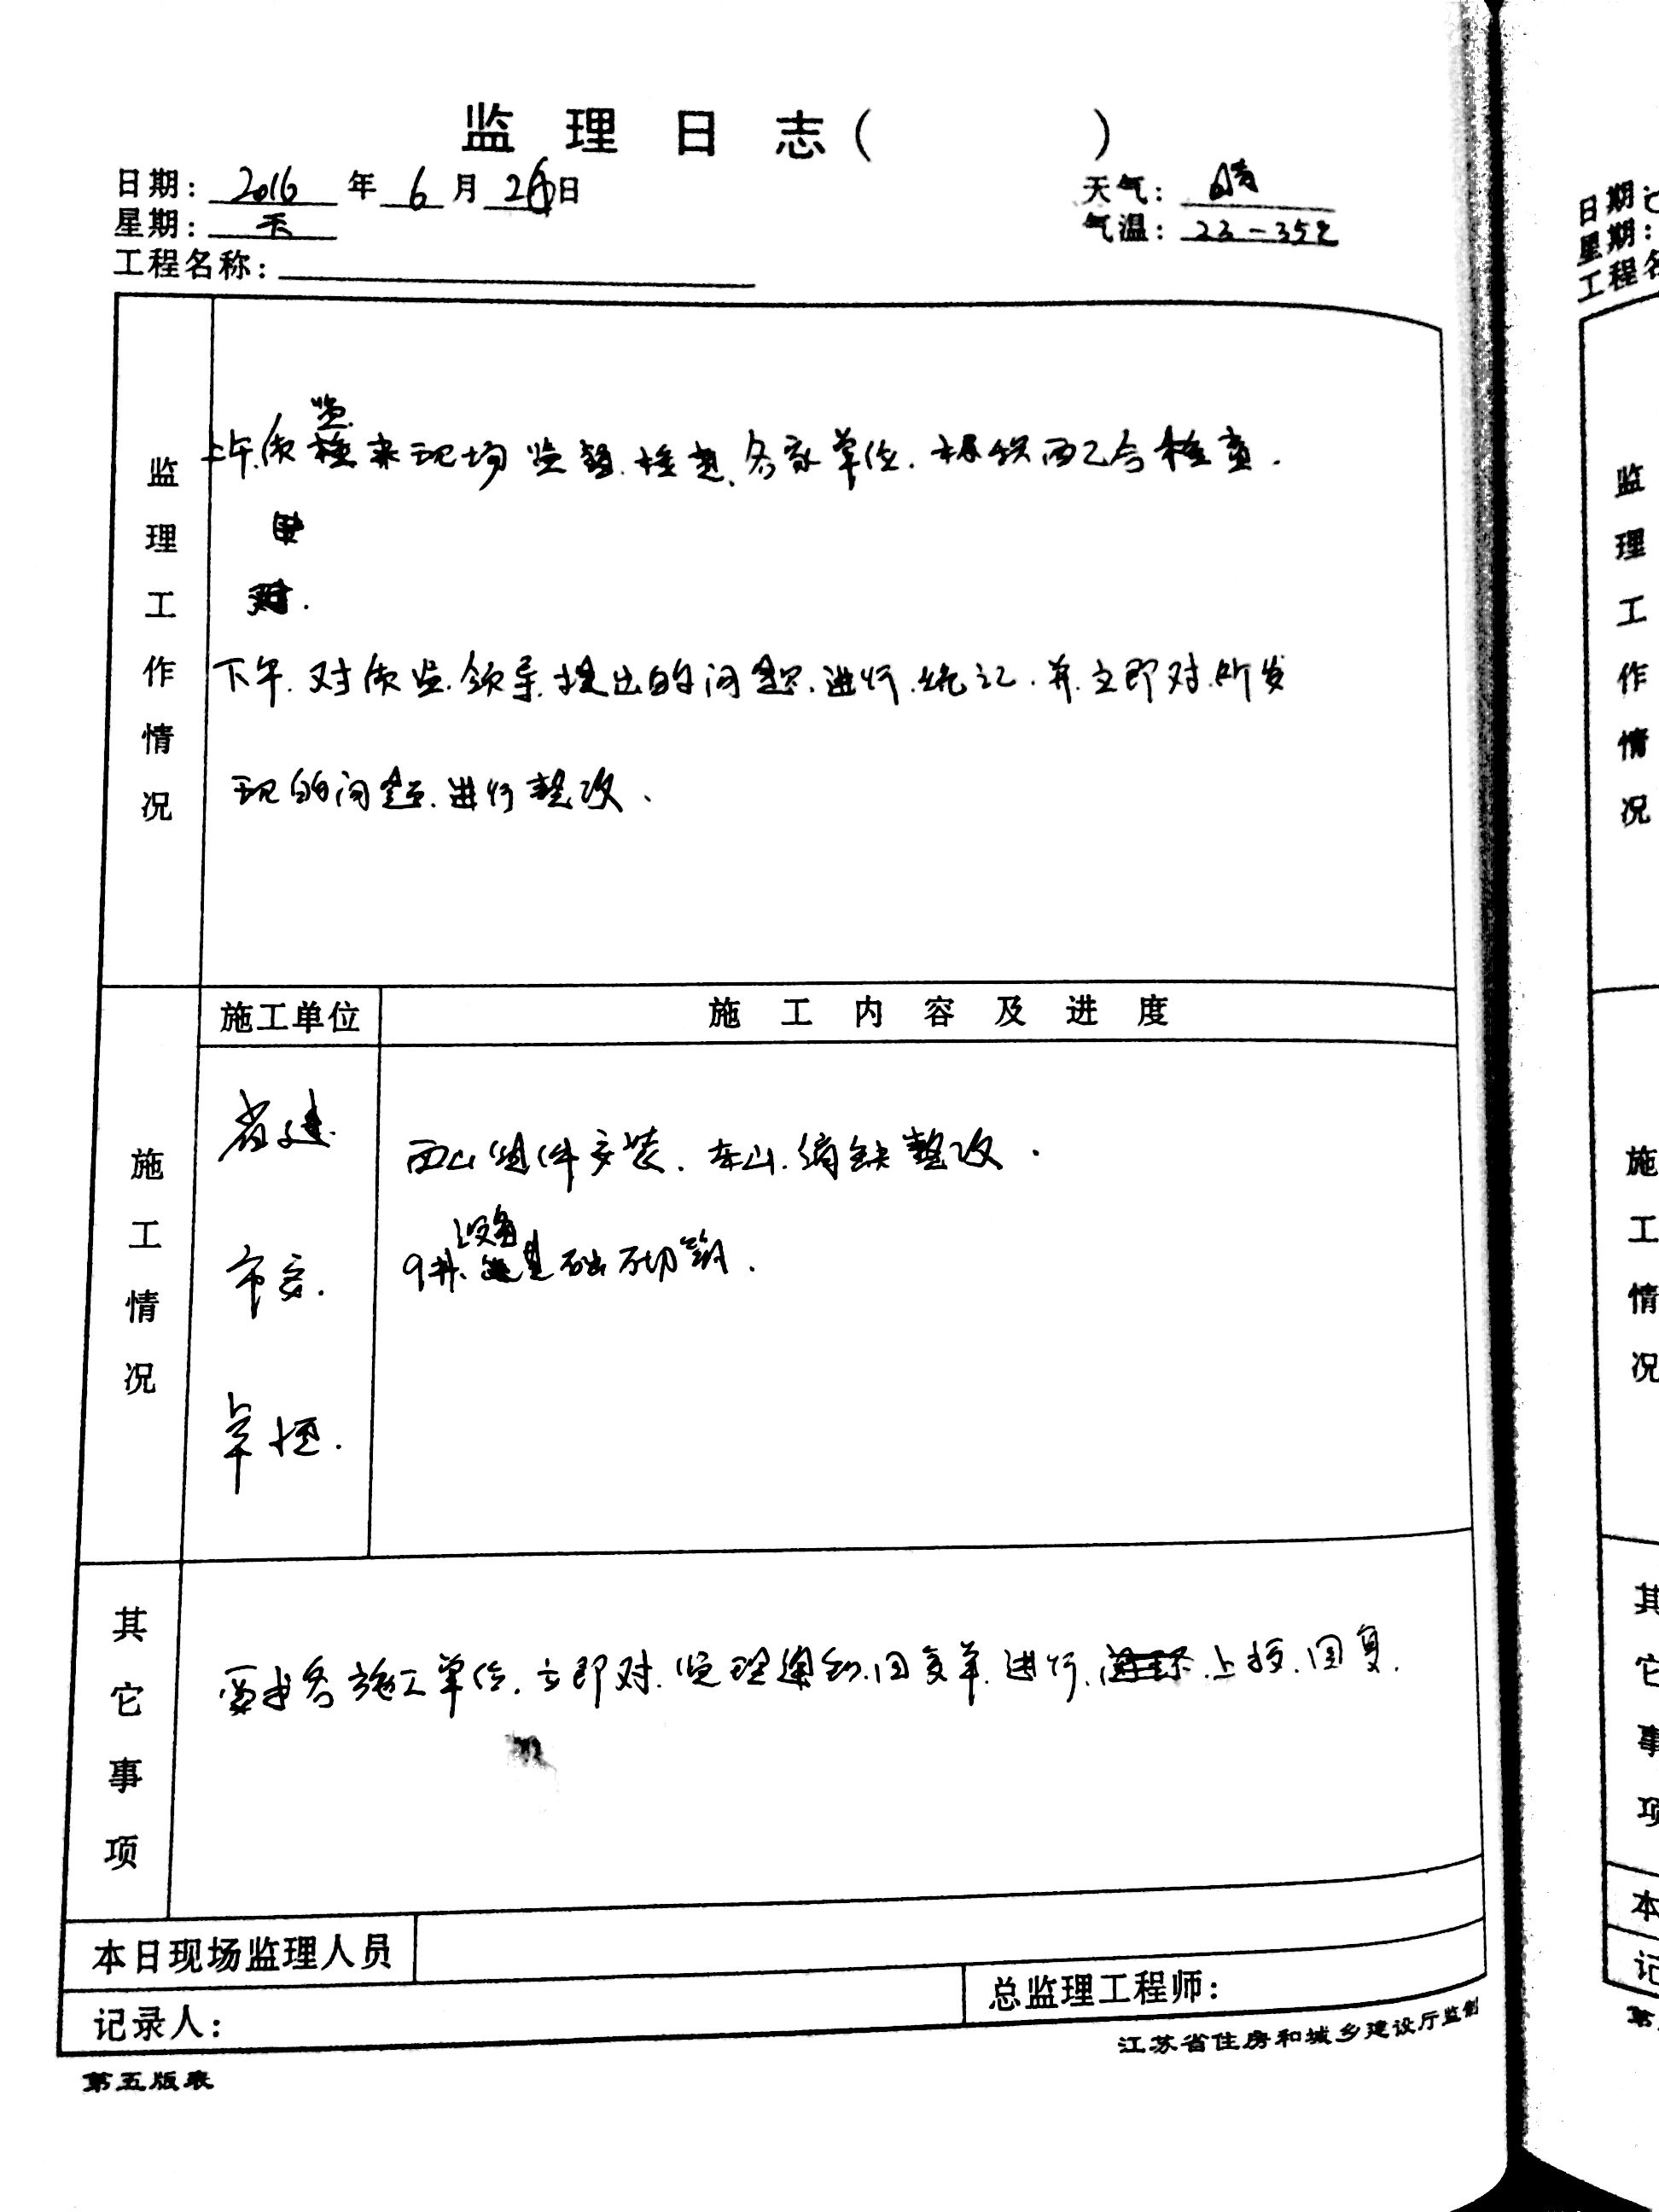 监理日志（ ）
日期：2016年6月26日
星期：天
天气：晴
气温：23-35℃
工程名称：
监理工作情况
上午.质监来现场监督.检查.各家单位.积极配合检查.
下午.对质监.领导.提出的问题.进行.统计.并.立即对.所发
现的问题.进行整改.
施工情况
施工单位
施工内容及进度
省建.
西山组件安装.东山.消缺整改.
市安.
9井.设备基础砌筑.
阜恒.
其它事项
要求各施工单位.立即对.监理通知.回复单.进行.上报.回复.
本日现场监理人员
记录人：
总监理工程师：
第五版表
江苏省住房和城乡建设厅监制
日期
星期：
工程名
监理工作情况
施工情况
其它事项
本
记
第